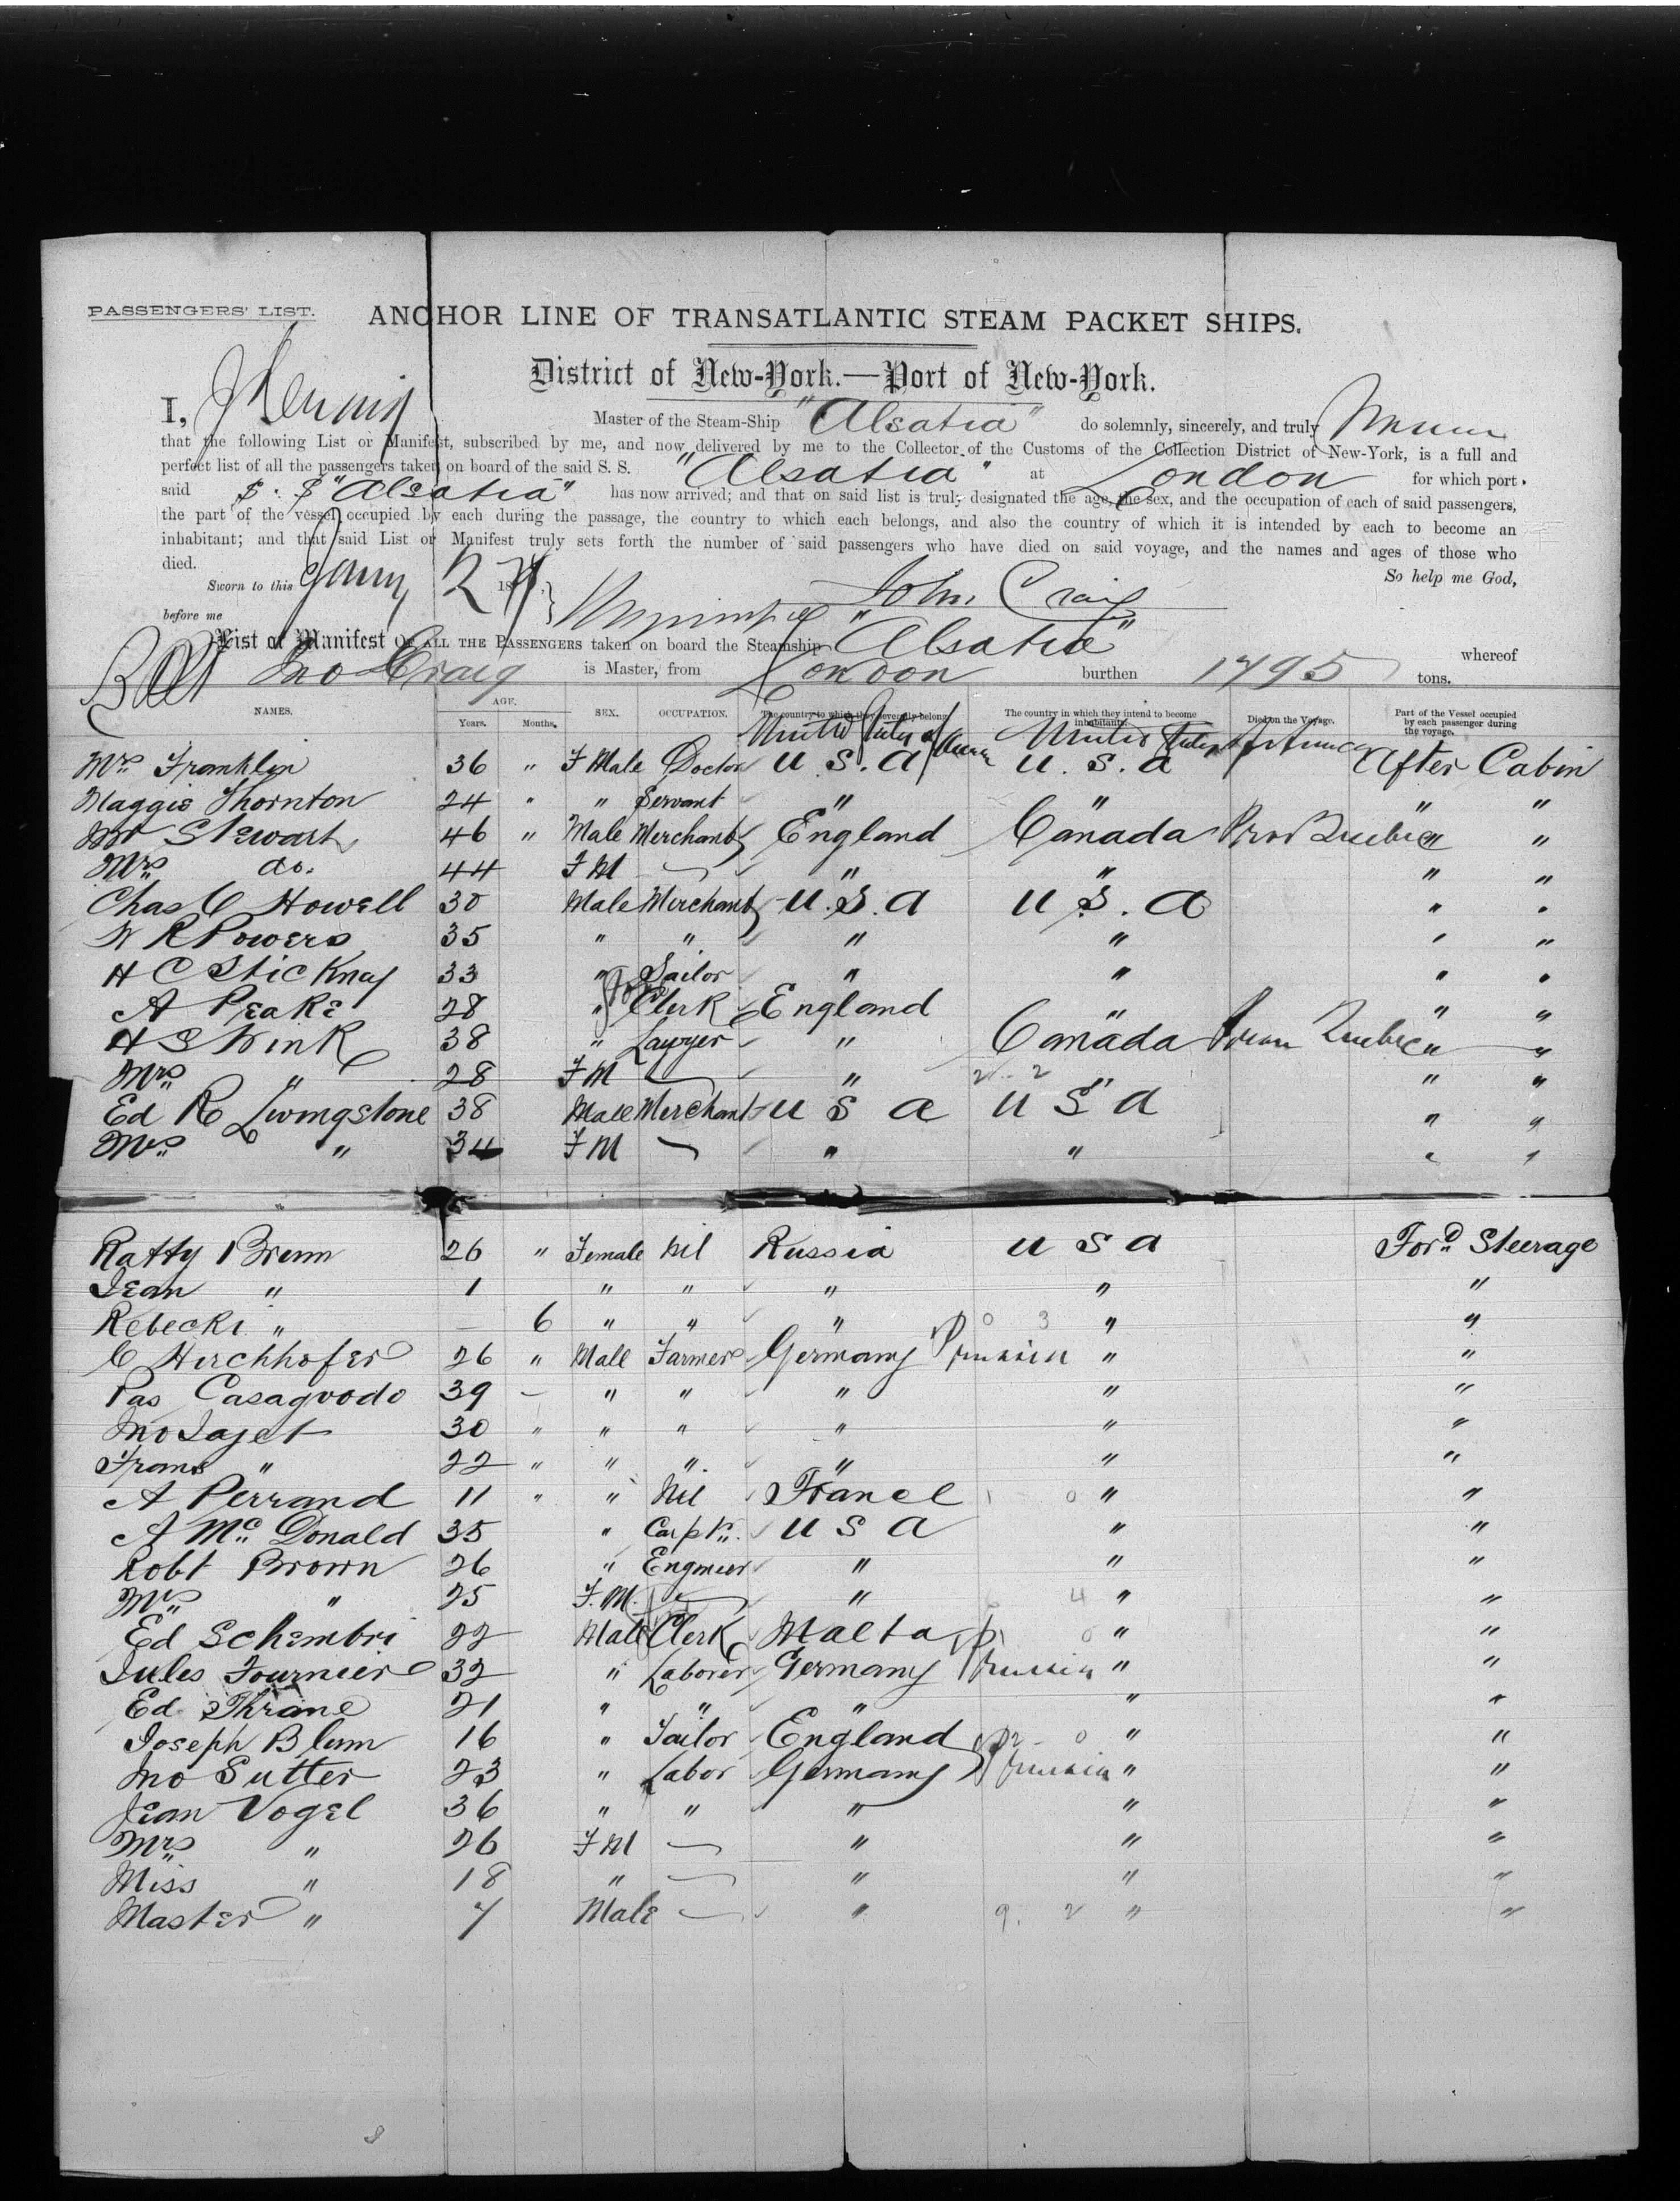 PASSENGERS' LIST.
ANCHOR LINE OF TRANSATLANTIC STEAM PACKET SHIPS.
District of New-York.—Port of New-York.
I, Master of the Steam-Ship "Alsatia" do solemnly, sincerely, and truly
that the following List or Manifest, subscribed by me, and now delivered by me to the Collector of the Customs of the Collection District of New-York, is a full and
perfect list of all the passengers taken on board of the said S. S. "Alsatia" at London for which port
said S.S "Alsatia" has now arrived; and that on said list is truly designated the age, the sex, and the occupation of each of said passengers,
the part of the vessel occupied by each during the passage, the country to which each belongs, and also the country of which it is intended by each to become an
inhabitant; and that said List or Manifest truly sets forth the number of said passengers who have died on said voyage, and the names and ages of those who
died.
So help me God,
Sworn to this Jany 2 18
before me John Craig
List or Manifest OF ALL THE PASSENGERS taken on board the Steamship "Alsatia" whereof
Jno Craig is Master, from London burthen 1795 tons.
NAMES. AGE. Years. Months. SEX. OCCUPATION. The country to which they severally belong. The country in which they intend to become inhabitants. Died on the Voyage. Part of the Vessel occupied by each passenger during the voyage.
United States of United States of America
Mrs Franklin 36 " F Male Doctor U.S.A U.S.A After Cabin
Maggie Thornton 24 " " Servant " " " "
Mr Stewart 46 " Male Merchant England Canada Prov Quebec " "
Mrs do. 44 F M — " " " "
Chas C Howell 30 Male Merchant U.S.A U S. A " "
W R Powers 35 " " " " " "
H C Sticknay 33 " Sailor " " " "
A Peake 28 " Clerk England " " "
H S Wink 38 " Lawyer " Canada Quebec " "
Mrs " 28 F M — " " " "
Ed R Livingstone 38 Male Merchant U S A U S A " "
Mrs " 34 F M — " " " "
Ratty Brenn 26 " Female Nil Russia U S A Ford Steerage
Jean " 1 " " " " "
Rebecki " — 6 " " " " "
C Hirchhofer 26 " Male Farmer Germany Prussia " "
Pas Casagvodo 39 — " " " " "
Jno Jajet 30 " " " " " "
Frans " 22 " " " " " "
A Perrand 11 " " Nil France " "
A Mc Donald 35 " Carptr. U S A " "
Robt Brown 26 " Engineer " " "
Mrs " 25 F. M. — " 4 " "
Ed Schembri 22 Male Clerk Malta " "
Jules Fournier 32 " Laborer Germany Prussia " "
Ed Thrane 21 " " " " "
Joseph Blum 16 " Tailor England " "
Jno Sutter 23 " Labor Germany Prussia " "
Jean Vogel 36 " " " " "
Mrs " 26 F M — " " "
Miss " 18 " — " " "
Master " 7 Male — " 9. 2 " "